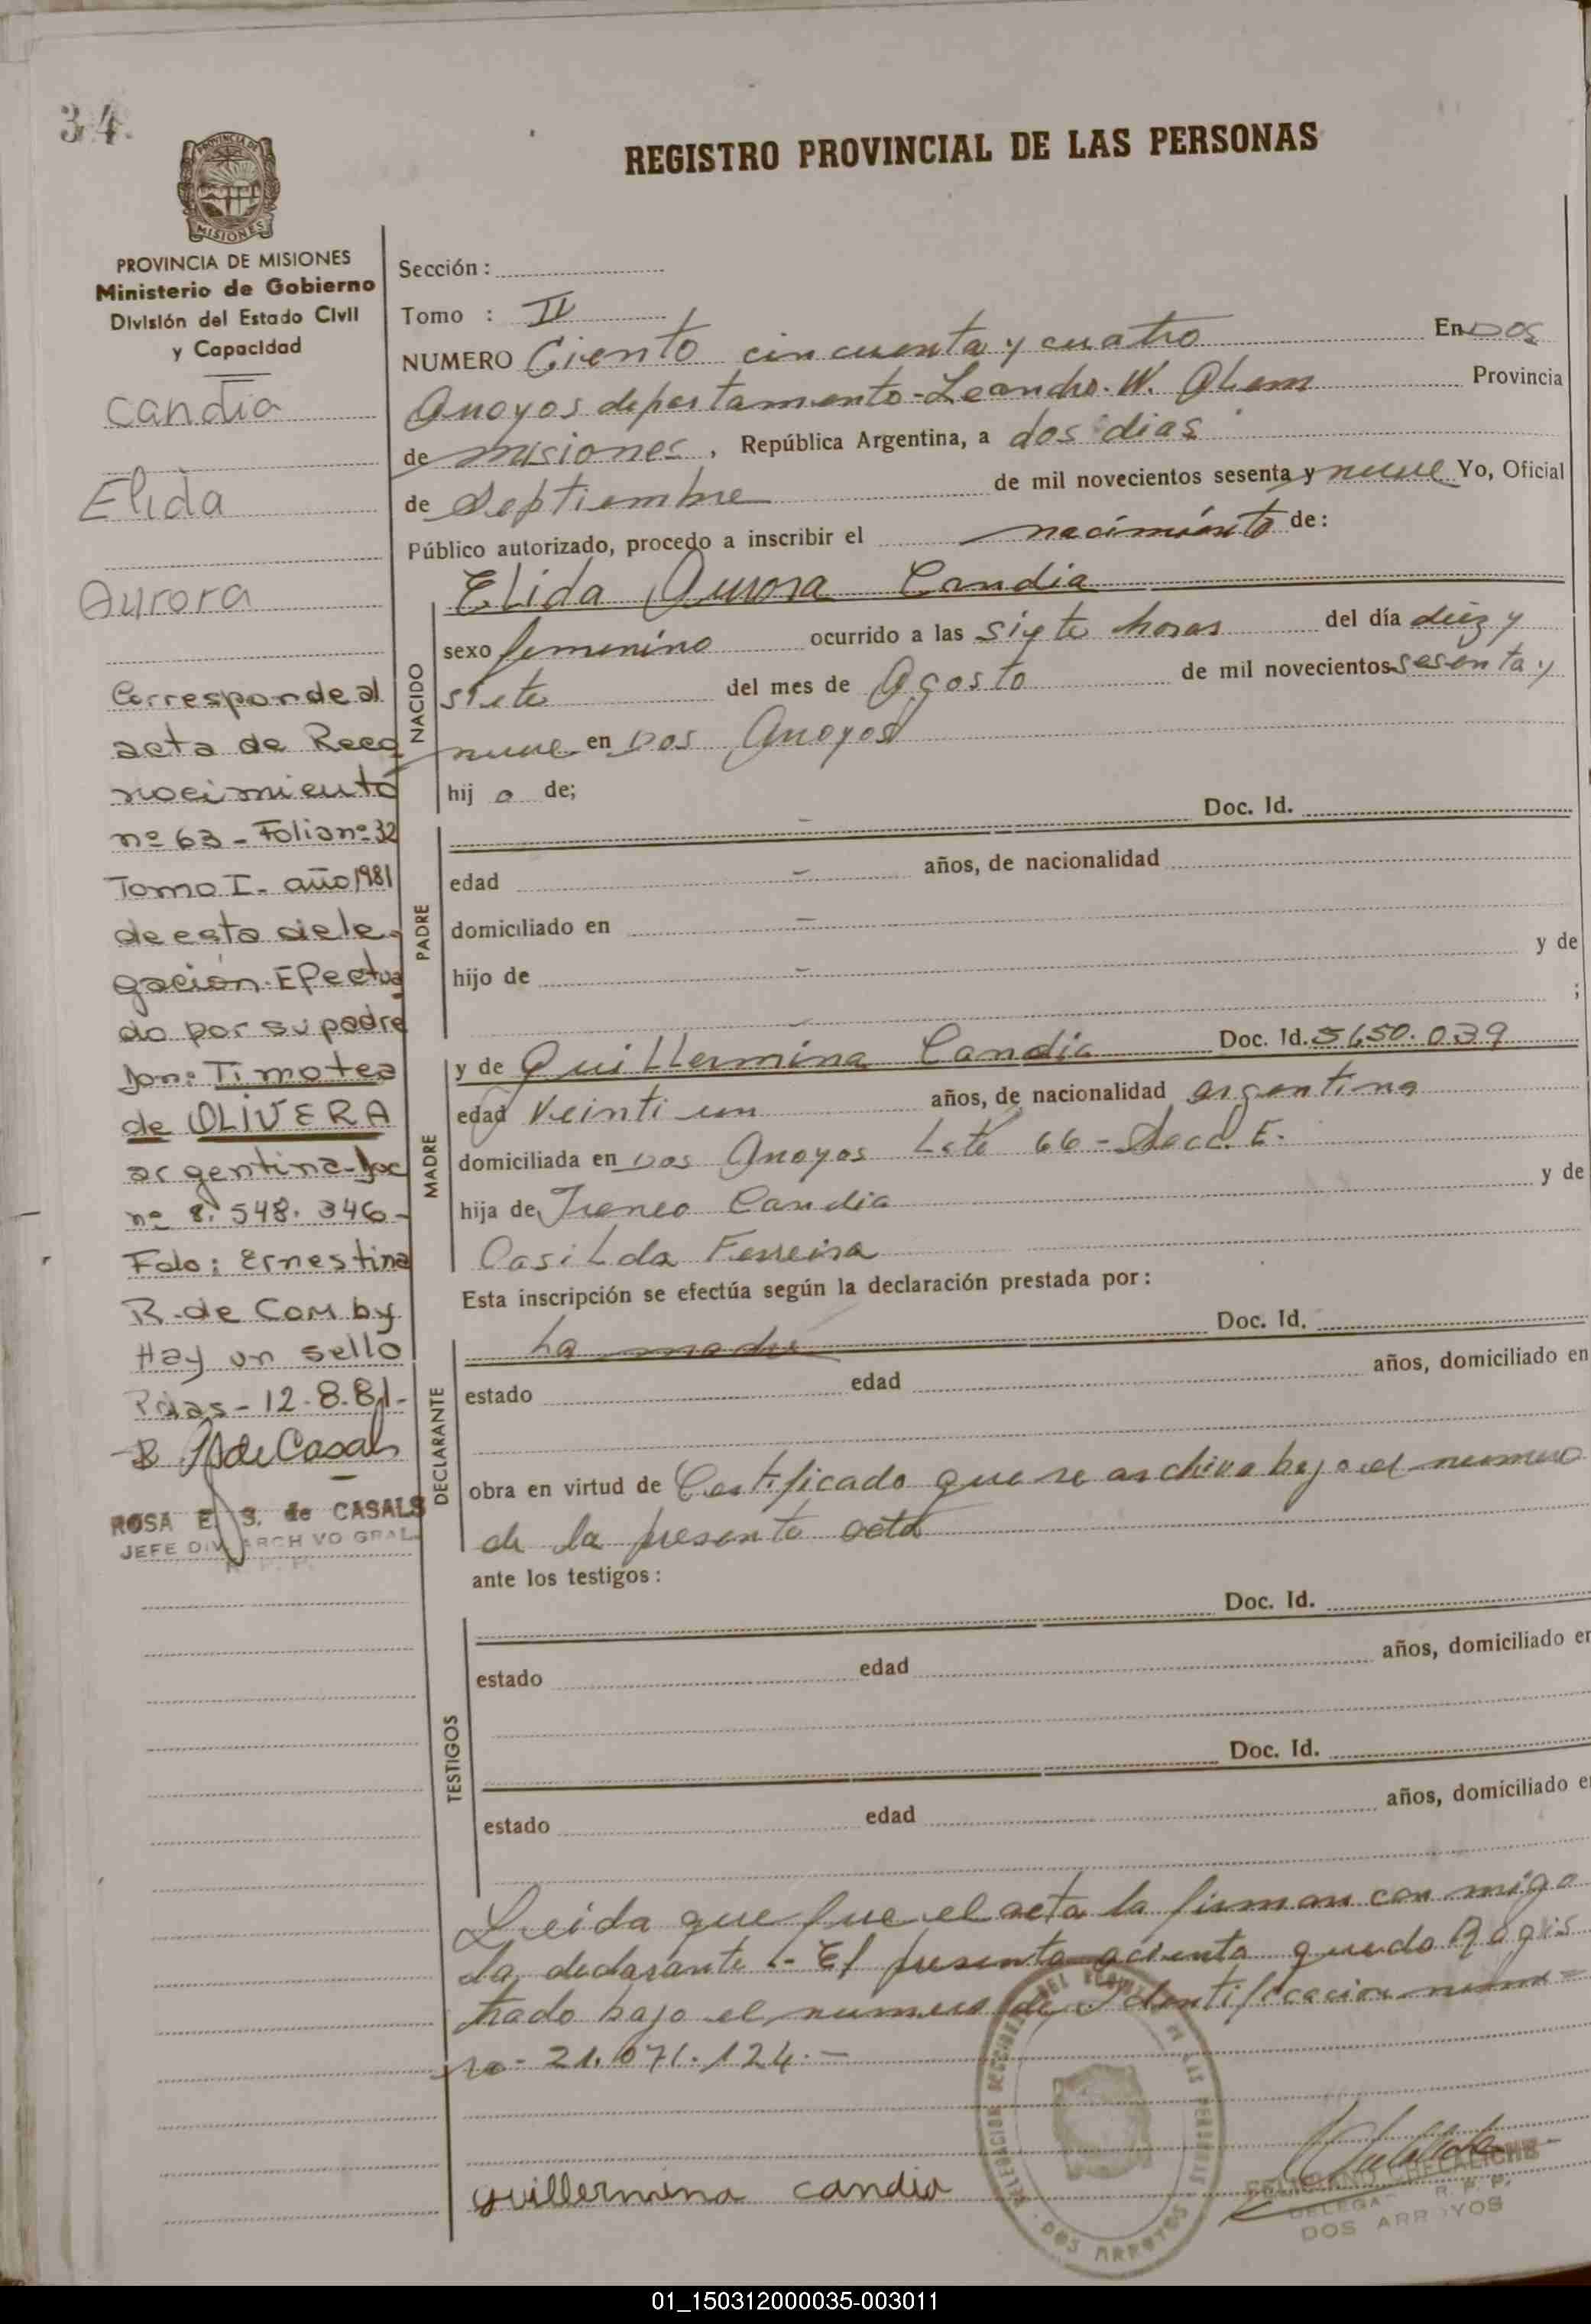 34.
REGISTRO PROVINCIAL DE LAS PERSONAS
PROVINCIA DE
MISIONES
PROVINCIA DE MISIONES
Ministerio de Gobierno
División del Estado Civil
y Capacidad
Candia
Elida
Aurora
Corresponde al
acta de Reco
nocimiento
nº 63 - Folio nº 32
Tomo I. año 1981
de esta dele
gación. Efectua
do por su padre
don: Timoteo
de OLIVERA
argentino. doc
nº 8. 548. 346 -
Fdo: Ernestina
R. de Comby
Hay un sello
Pdas - 12 - 8. 81 -
ROSA E. S. de CASALS
JEFE DIV. ARCHIVO GRAL.
Sección :
Tomo : II
NUMERO Ciento cincuenta y cuatro En Dos
Arroyos departamento - Leandro. N. Alem Provincia
de misiones , República Argentina, a dos dias
de Septiembre de mil novecientos sesenta y nueve Yo, Oficial
Público autorizado, procedo a inscribir el nacimiento de:
Elida Aurora Candia
NACIDO
sexo femenino ocurrido a las siete horas del día diez y
siete del mes de Agosto de mil novecientos sesenta y
nueve en Dos Arroyos
hij a de;
PADRE
- Doc. Id.
edad - años, de nacionalidad
domiciliado en -
hijo de - y de
- ;
MADRE
y de Guillermina Candia Doc. Id. 5650. 039
edad veinti un años, de nacionalidad argentina
domiciliada en Dos Arroyos Lote 66 - Secc. E.
hija de Ireneo Candia y de
Casilda Ferreira
Esta inscripción se efectúa según la declaración prestada por :
DECLARANTE
La madre Doc. Id.
estado edad años, domiciliado en
obra en virtud de Certificado que se archiva bajo el numero
de la presente acta
ante los testigos :
TESTIGOS
Doc. Id.
estado edad años, domiciliado en
Doc. Id.
estado edad años, domiciliado en
Leida que fue el acta la firman con migo
la declarante .- El presente aciento quedo Regis
trado bajo el numero de Identificacion nume =
ro - 21. 071. 124. -
guillermina candia
DOS ARROYOS
DELEGA R. P. P.
DOS ARROYOS
01_150312000035-003011